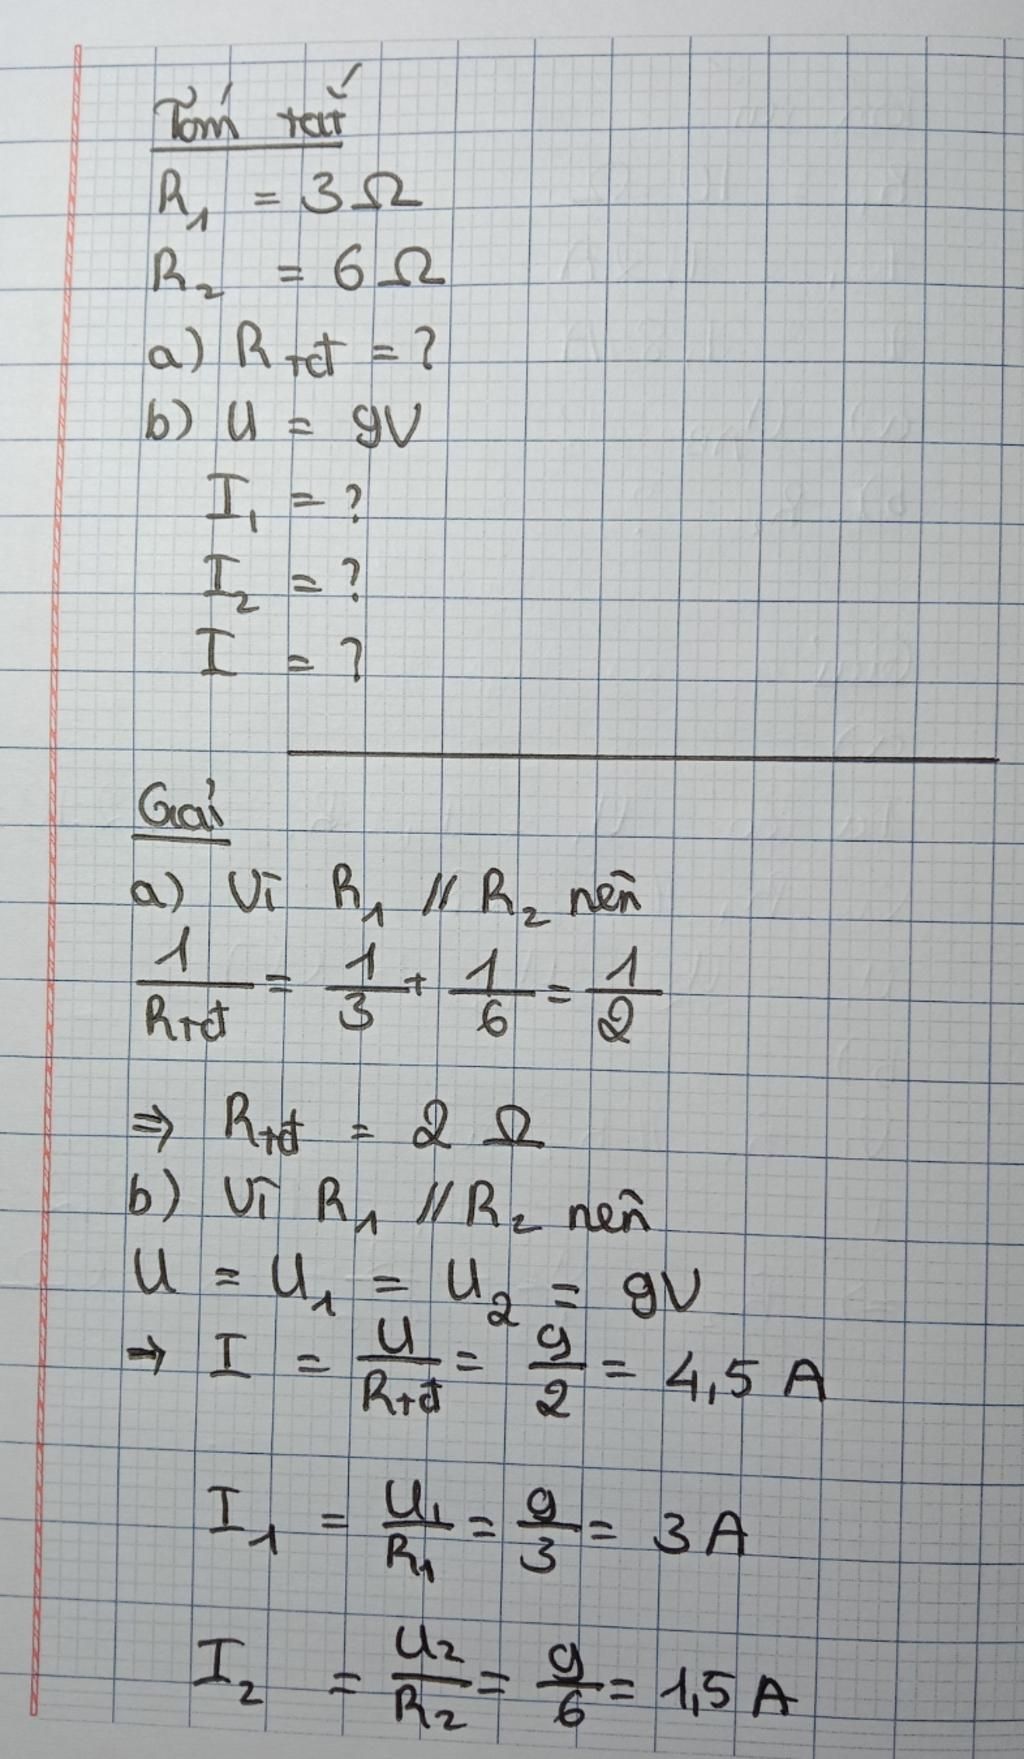 Tóm tắt
R₁ = 3 Ω
R₂ = 6 Ω
a) Rtđ = ?
b) U = 9V
I₁ = ?
I₂ = ?
I = ?
Giải
a) Vì R₁ // R₂ nên
1/Rtđ = 1/3 + 1/6 = 1/2
⇒ Rtđ = 2 Ω
b) Vì R₁ // R₂ nên
U = U₁ = U₂ = 9V
→ I = U/Rtđ = 9/2 = 4,5 A
I₁ = U₁/R₁ = 9/3 = 3 A
I₂ = U₂/R₂ = 9/6 = 1,5 A